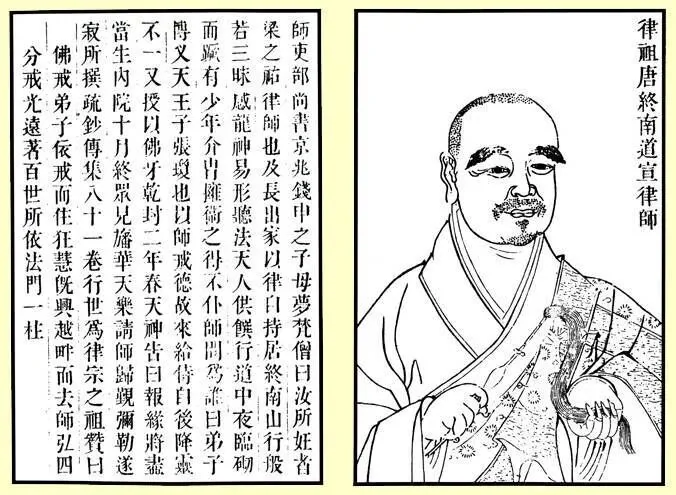 律祖唐終南道宣律師
師吏部尚書京兆錢申之子母夢梵僧曰汝所妊者
梁之祐律師也及長出家以律自持居終南山行般
若三昧感龍神易形聽法天人供饌行道中夜臨砌
而蹶有少年介冑擁衛之得不仆師問爲誰曰弟子
博叉天王子張瓊也以師戒德故來給侍自後降靈
不一又授以佛牙乾封二年春天神告曰報緣將盡
當生內院十月終眾見旛華天樂請師歸覲彌勒遂
寂所撰疏鈔傳集八十一卷行世爲律宗之祖贊曰
佛戒弟子依戒而住狂慧旣興越畔而去師弘四
分戒光遠著百世所依法門一柱